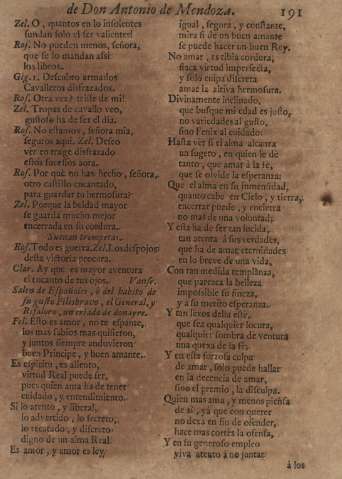 de Don Antonio de Mendoza. 191
Zel. O, quantos en lo insolentes
fundan solo el ser valientes!
Ros. No pueden menos, señora,
que se lo mandan assi
los libros.
Gig. 1. Descubro armados
Cavalleros disfrazados.
Ros. Otra vez? triste de mi!
Zel. Tropas de cavallo veo,
gustoso ha de ser el dia.
Ros. No estamos, señora mia,
seguros aqui. Zel. Deseo
ver en trage disfrazado
estos sucessos aora.
Ros. Por què no has hecho, señora,
otro castillo encantado,
para guardar tu hermosura?
Zel. Porque la beldad mayor
se guarda mucho mejor
encerrada en su cordura.
Suenan trompetas.
Ros. Todo es guerra. Zel. Los despojos
desta victoria procura.
Clar. Ay que es mayor aventura
el tocante de tus ojos. Vanse.
Salen de Españoles, ò del habito de
su gusto Felisbravo, el General, y
Rifaloro, un criado de donayre.
Fel. Esto es amor, no te espante,
los mas sabios mas quisieron,
y juntos siempre anduvieron
buen Principe, y buen amante.
Es espiritu, es aliento,
virtud Real puede ser,
pues quien ama ha de tener
cuidado, y entendimiento.
Si lo atento, y liberal,
lo advertido, lo secreto,
lo recatado, y discreto
digno de un alma Real.
Es amor, y amor es ley,
igual, segura, y constante,
mira si de un buen amante
se puede hacer un buen Rey.
No amar, es tibia cordura,
flaca virtud imperfecta,
y solo culpa discreta
amar la altiva hermosura.
Divinamente inclinado,
que busque mi edad es justo,
no variedades al gusto,
sino Fenix al cuidado:
Hasta ver si el alma alcanza
un sugeto, en quien le dè
tanto, que amar à la fè,
que se olvide la esperanza:
Que el alma en su inmensidad,
quanto cabe en Cielo, y tierra,
encerrar puede, y encierra
no mas de una voluntad;
Y esta ha de ser tan lucida,
tan atenta à sus verdades,
que ha de amar eternidades
en lo breve de una vida.
Con tan medida templanza,
que parezca la belleza
impossible su fineza,
y à su merito esperanza.
Y tan lexos desta este,
que sea qualquier locura,
qualquier sombra de ventura
una quexa de la fè.
Y en esta forzosa culpa
de amar, solo puede hallar
en la decencia de amar,
sino el premio, la disculpa.
Quien mas ama, y menos piensa
de sì, yà que con querer
no dexa en fin de ofender,
hace mas cortès la ofensa,
Y en su generoso empleo
viva atento à no juntar
à los